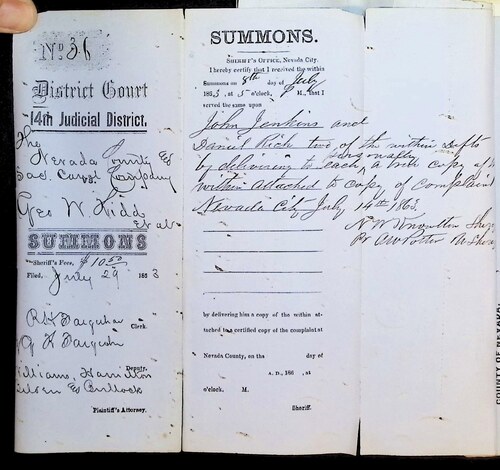 No 36
District Court
14th Judicial District.
The
Nevada County &
Sac. Canal Company
vs.
Geo W. Kidd
Et als
SUMMONS
Sheriff's Fees, $10.50
Filed, July 29 1863
Clerk.
Deputy.
Williams, Hamilton
Plaintiff's Attorney.
SUMMONS.
Sheriff's Office, Nevada City.
I hereby certify that I received the within
Summons on 8th day of July
1863, at 5 o'clock, P M., that I
served the same upon
John Jenkins and
Daniel Rich two of the within Defts
by delivering to each personally a true copy of
within attached to copy of complaint
Nevada City July 14th 1863.
N. W. Knowlton Sheriff
by delivering him a copy of the within at-
tached to a certified copy of the complaint at
Nevada County, on the day of
A. D., 186 , at
o'clock, M.
Sheriff.